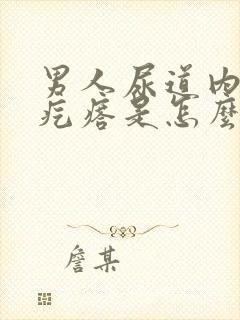 男人尿道内
疙瘩是怎麼
詹某